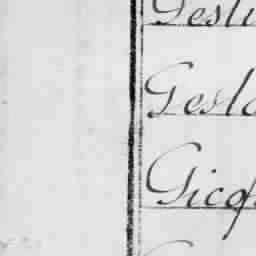 Gesli
Gesla
Gicq